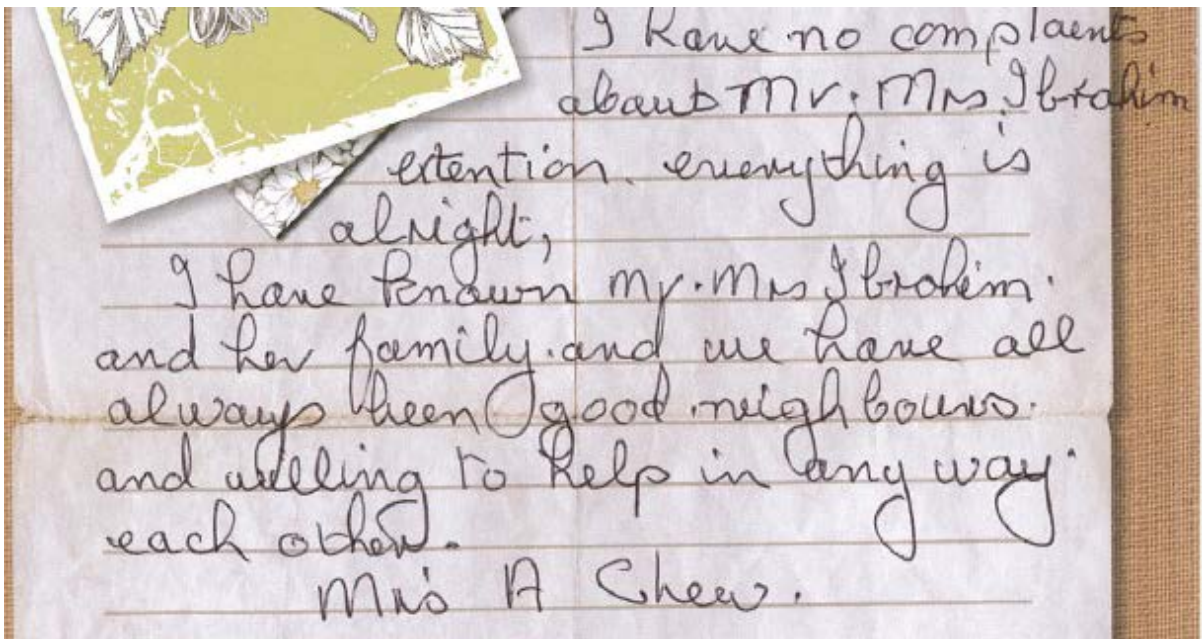 I have no complaents
about Mr. Mrs Ibrahim
extention. everything is
alright,
I have known Mr. Mrs Ibrahim.
and her family. and we have all
always been good neighbours.
and willing to help in any way.
each other.
Mrs A Chew.